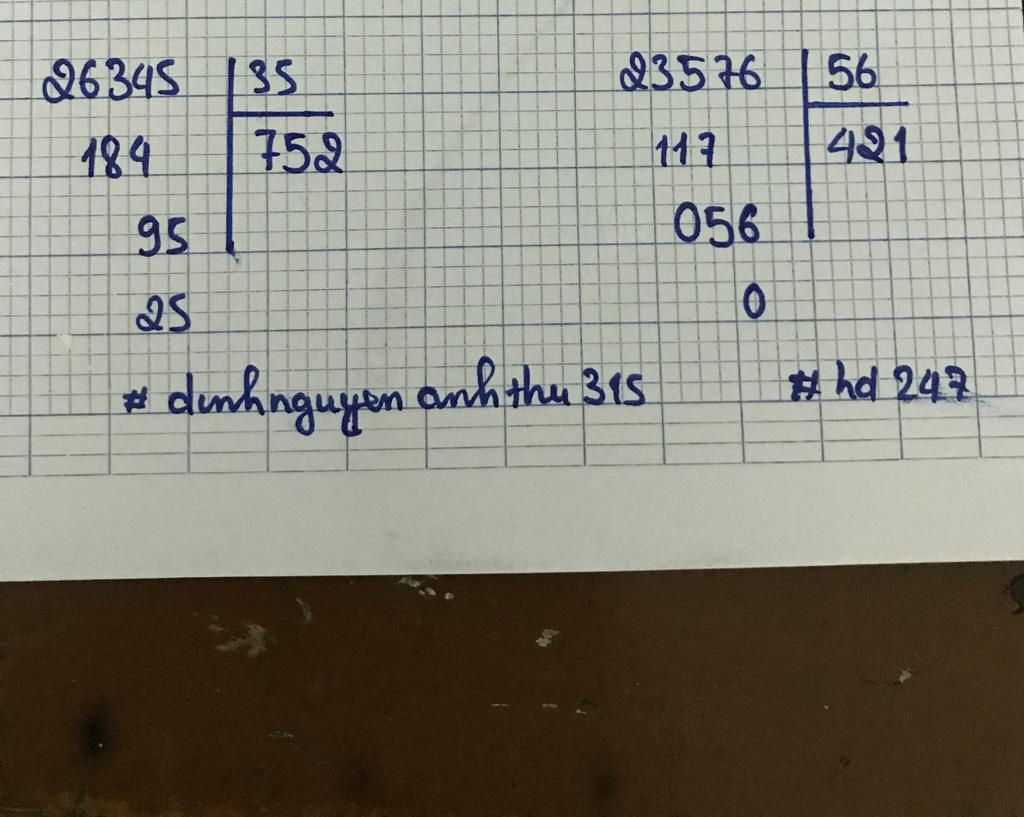 26345 35 23576 56
184 752 117 421
95 056
25 0
# dinhnguyen anhthu 315 # hd 247